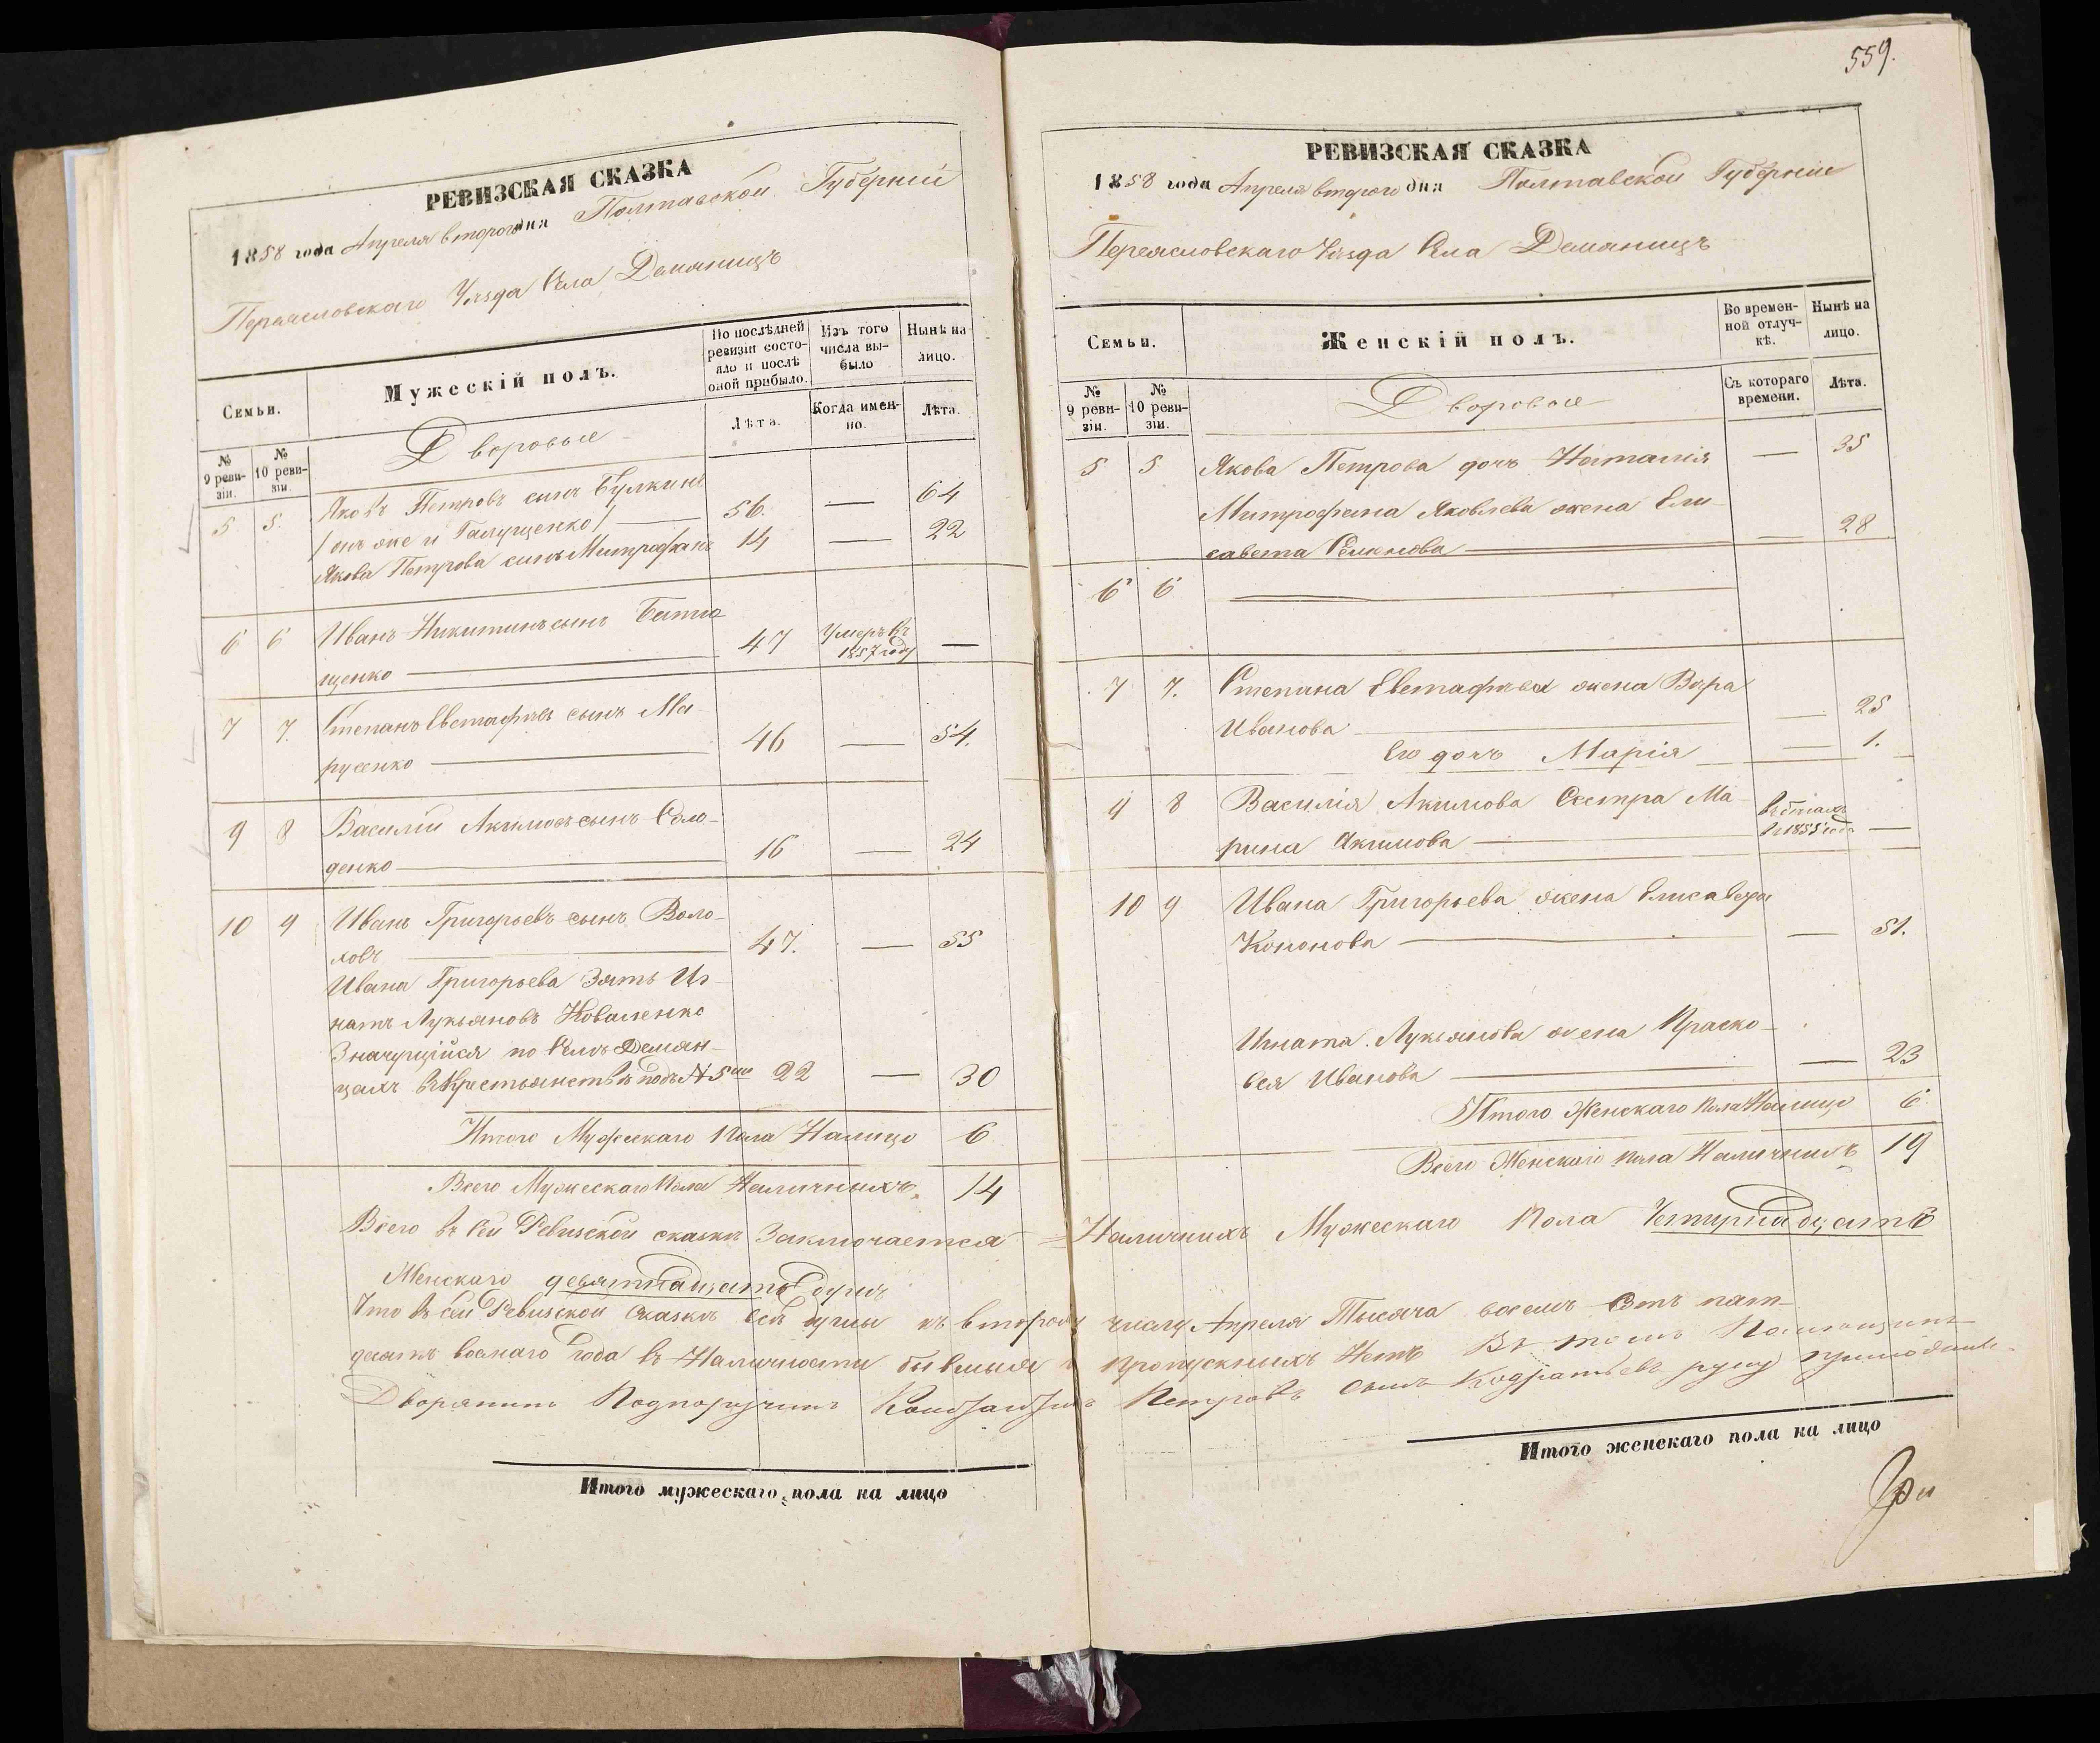 559.
РЕВИЗСКАЯ СКАЗКА
1858 года Апреля второго дня Полтавской Губерніи
Переясловскаго Уѣзда Села Демянищъ
Семьи.
Мужескій полъ.
По послѣдней ревизіи состояло и послѣ оной прибыло.
Изъ того числа выбыло
Нынѣ на лицо.
№ 9 ревизіи.
№ 10 ревизіи.
Дворовые
Лѣта.
Когда именно.
Лѣта.
5. 5. Яковъ Петровъ сынъ Булкинъ
/онъ же и Галущенко/ 56. — 64
Якова Петрова сынъ Митрофанъ 14 — 22
6 6 Иванъ Никитинъ сынъ Батю-
щенко 47 Умеръ въ 1857 году —
7 7. Степанъ Евстафьевъ сынъ Ма-
русенко 46 — 54.
9 8 Василій Акимовъ сынъ Соло-
денко 16 — 24
10 9 Иванъ Григорьевъ сынъ Воло-
ховъ 47. — 55
Ивана Григорьева Зять Иг-
натъ Лукьяновъ Коваленко
Значущійся по Селѣ Демян-
цахъ въ Крестьянствѣ подъ № 5мъ 22 — 30
Итого Мужескаго Пола Налицо 6
Всего Мужескаго Пола Наличныхъ 14
РЕВИЗСКАЯ СКАЗКА
1858 года Апреля второго дня Полтавской Губерніи
Переясловскаго Уѣзда Села Демянищъ
Семьи.
Женскій полъ.
Во временной отлучкѣ.
Нынѣ на лицо.
№ 9 ревизіи.
№ 10 ревизіи.
Дворовые
Съ котораго времени.
Лѣта.
5 5 Якова Петрова дочь Наталія — 35
Митрофана Яковлева жена Ели-
савета Семенова — 28
6 6
7 7. Степана Евстафьева жена Вѣра
Иванова — 25
Его дочь Марія — 1.
9 8 Василія Акимова Сестра Ма-
рина Акимова въ 1855 году —
10 9 Ивана Григорьева жена Елисавета
Кононова — 51.
Игната Лукьянова жена Праско-
вея Иванова — 23
Итого Женскаго Пола Налицо 6
Всего Женскаго пола Наличныхъ 19
Всего въ Сей Ревизской сказкѣ Заключается Наличныхъ Мужескаго Пола Четырнадцать
Женскаго девятнадцать душъ
Что въ сей Ревизской Сказкѣ всѣ души къ второму числу Апреля Тысяча восемь Сотъ пять-
десятъ восмаго года въ Наличности бывшія и пропускныхъ Нетъ Въ томъ Помещикъ
Дворянинъ Подпоручикъ Константинъ Петровъ Сынъ Кодратьевъ руку приложилъ.
Итого мужескаго пола на лицо
Итого женскаго пола на лицо